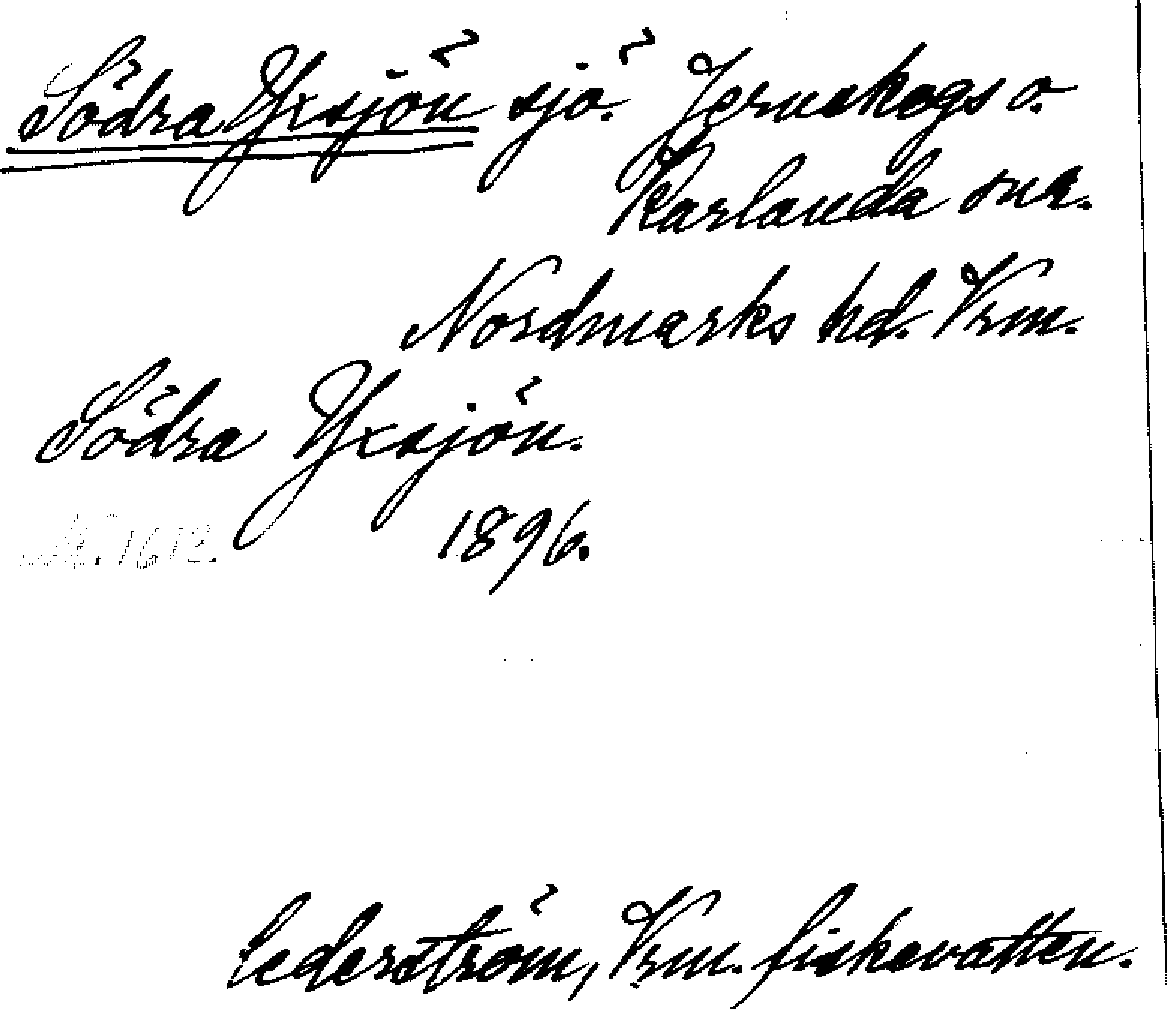 Södra Yxsjön sjö. Jernskogs o.
Karlanda sna.
Nordmarks hd. Vrm.
Södra Yxsjön.
1896.
Cederström, Vrm. fiskevatten.